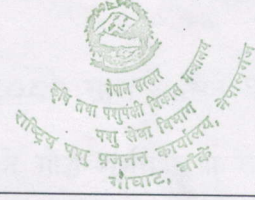 नेपाल सरकार
कृषि तथा पशुपंक्षी विकास मन्त्रालय
पशु सेवा विभाग
राष्ट्रिय पशु प्रजनन कार्यालय, नेपालगंज
गौघाट, बाँके